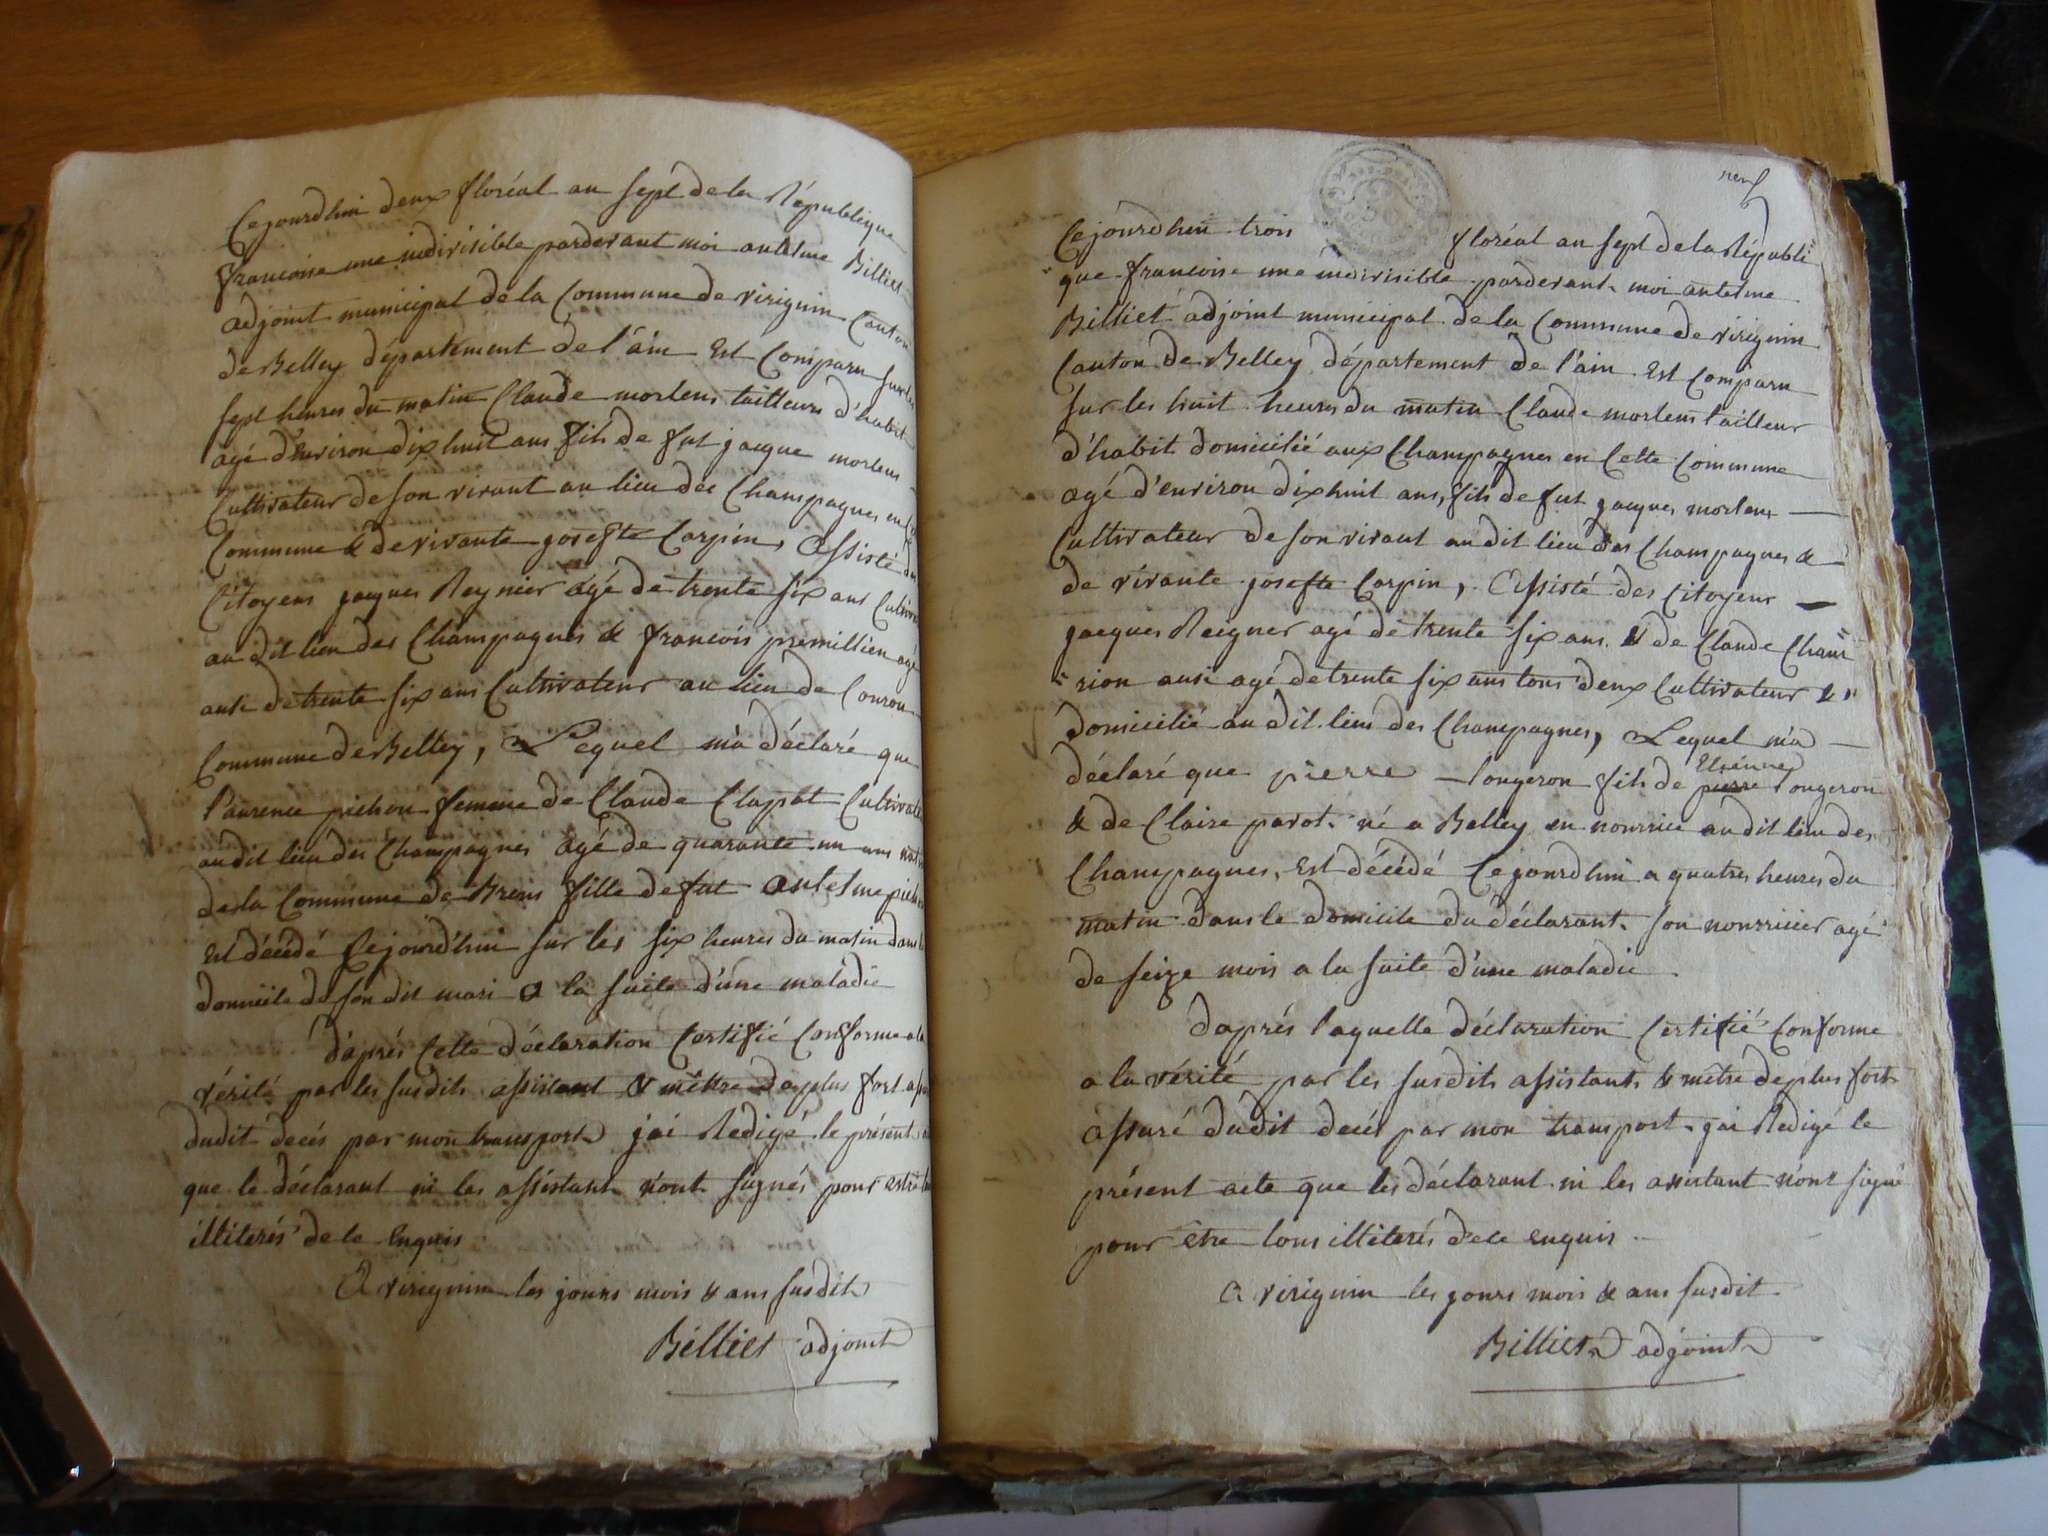 Cejourdhui deux floréal an sept de la République
francoise une indivisible pardevant moi antelme Billiet
adjoint municipal de la Commune de virignin Canton
de Belley département de l'ain Est Comparu sur les
sept heures du matin Claude mortens tailleurs d'habit
agé d'environ dix huit ans fils de fut jacque mortens
Cultivateur de son vivant au lieu des Champagnes en
Commune & de vivante josefte Carpin, Assisté des
Citoyens jaques Reynier agé de trente six ans
au dit lieu des Champagnes & francois premillieu agé
ausi de trente six ans Cultivateur au lieu de Courou
Commune de Belley, Lequel m'a déclaré que
laurence pichon femme de Claude Clapot
au dit lieu des Champagnes agé de quarante un ans
de la Commune de Brens fille de fut antelme
Est décédé Cejourd'hui sur les six heures du matin dans
domicile de son dit mari a la suite d'une maladie
d'aprés Cette déclaration Certifié Conforme a la
vérité par les susdits assistant & mêttre de plus fort
dudit decés par mon transport jai Redigé le présent
que le déclarant ni les assistant n'ont signés pour
illiterés de ce Enquis
A virignin les jours mois & ans susdit
Billiet adjoint
neuf
Cejourdhui trois floréal an sept de la Républi
que francoise une indivisible pardevant moi antelme
Billiet adjoint municipal de la Commune de virignin
Canton de Belley département de l'ain Est Comparu
sur les huit heures du matin Claude mortens tailleur
d'habit domicilié aux Champagnes en Cette Commune
agé d'environ dixhuit ans, fils de fut jacques mortens
Cultivateur de son vivant au dit lieu des Champagnes &
de vivante josefte Carpin, Assisté des Citoyens
jacques Reigner agé de trente six ans & de Claude Chau
rion ausi agé de trente six ans tous deux Cultivateur &
domicilié au dit lieu des Champagnes, Lequel m'a
déclaré que pierre longeron fils de pierre Etienne longeron
& de Claire parot né a Belley en nourrice au dit lieu des
Champagnes, Est décédé Cejourdhui a quatres heures du
matin dans le domicile du déclarant son nourricier agé
de seize mois a la suite d'une maladie
d'aprés laquelle déclaration Certifié Conforme
a la vérité par les susdits assistants & mêtre de plus fort
assuré dudit decés par mon transport jai Redigé le
présent acte que les déclarant ni les assistant n'ont signé
pour être tous illiterés de ce enquis
a virignin les jours mois & ans susdit
Billiet adjoint